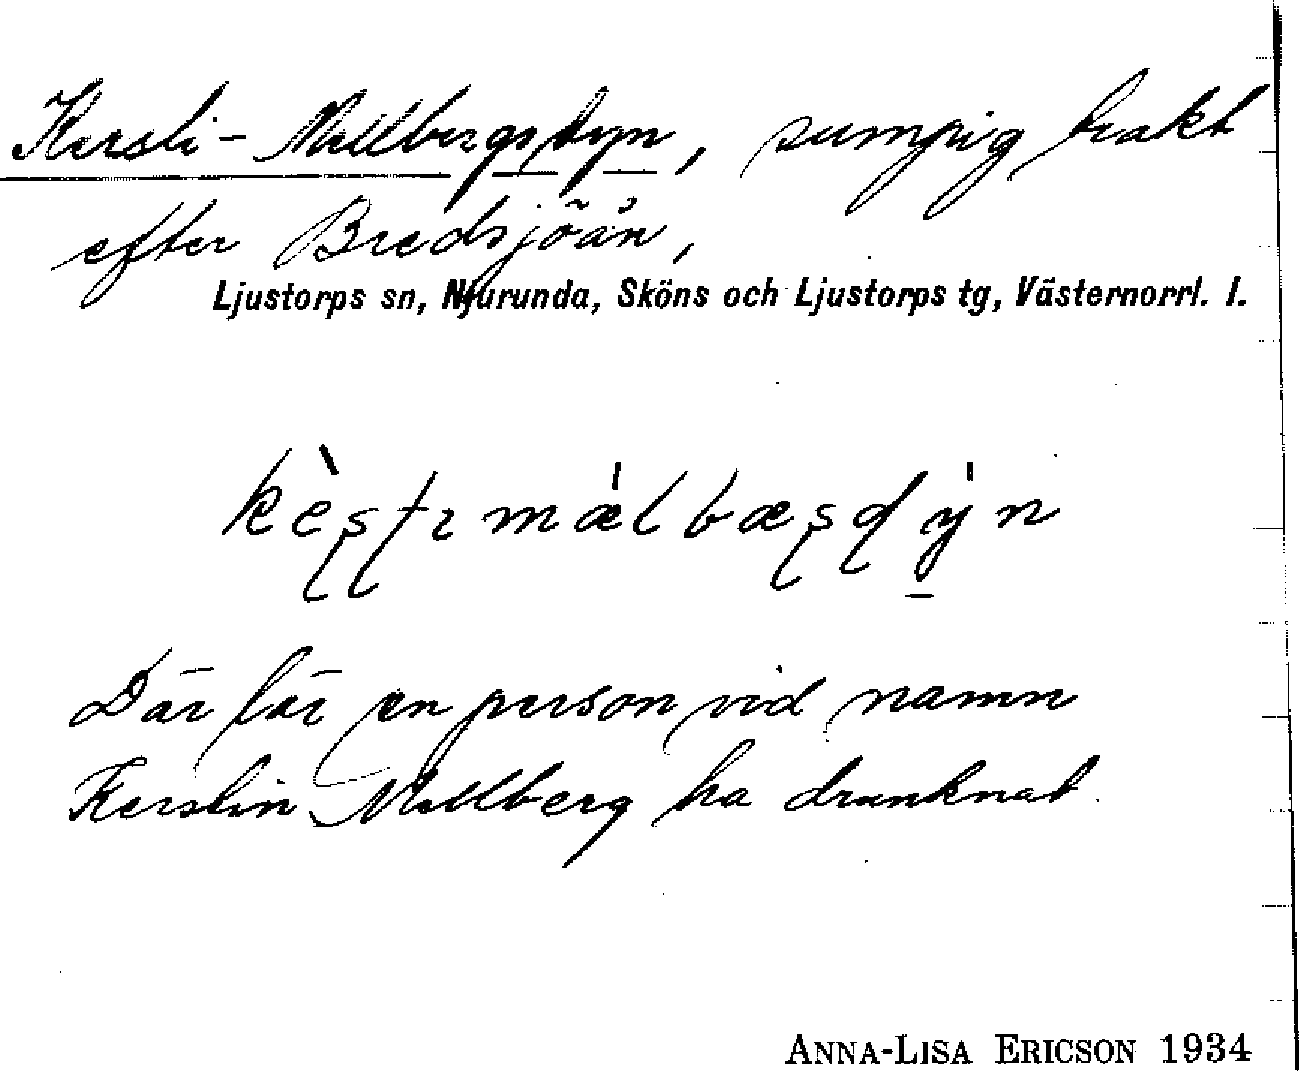 Kersti-Mellbergsdyn, sumpig trakt
efter Bredsjöån,
Ljustorps sn, Njurunda, Sköns och Ljustorps tg, Västernorrl. l.
Där lär en person vid namn
Kerstin Mellberg ha drunknat.
ANNA-LISA ERICSON 1934